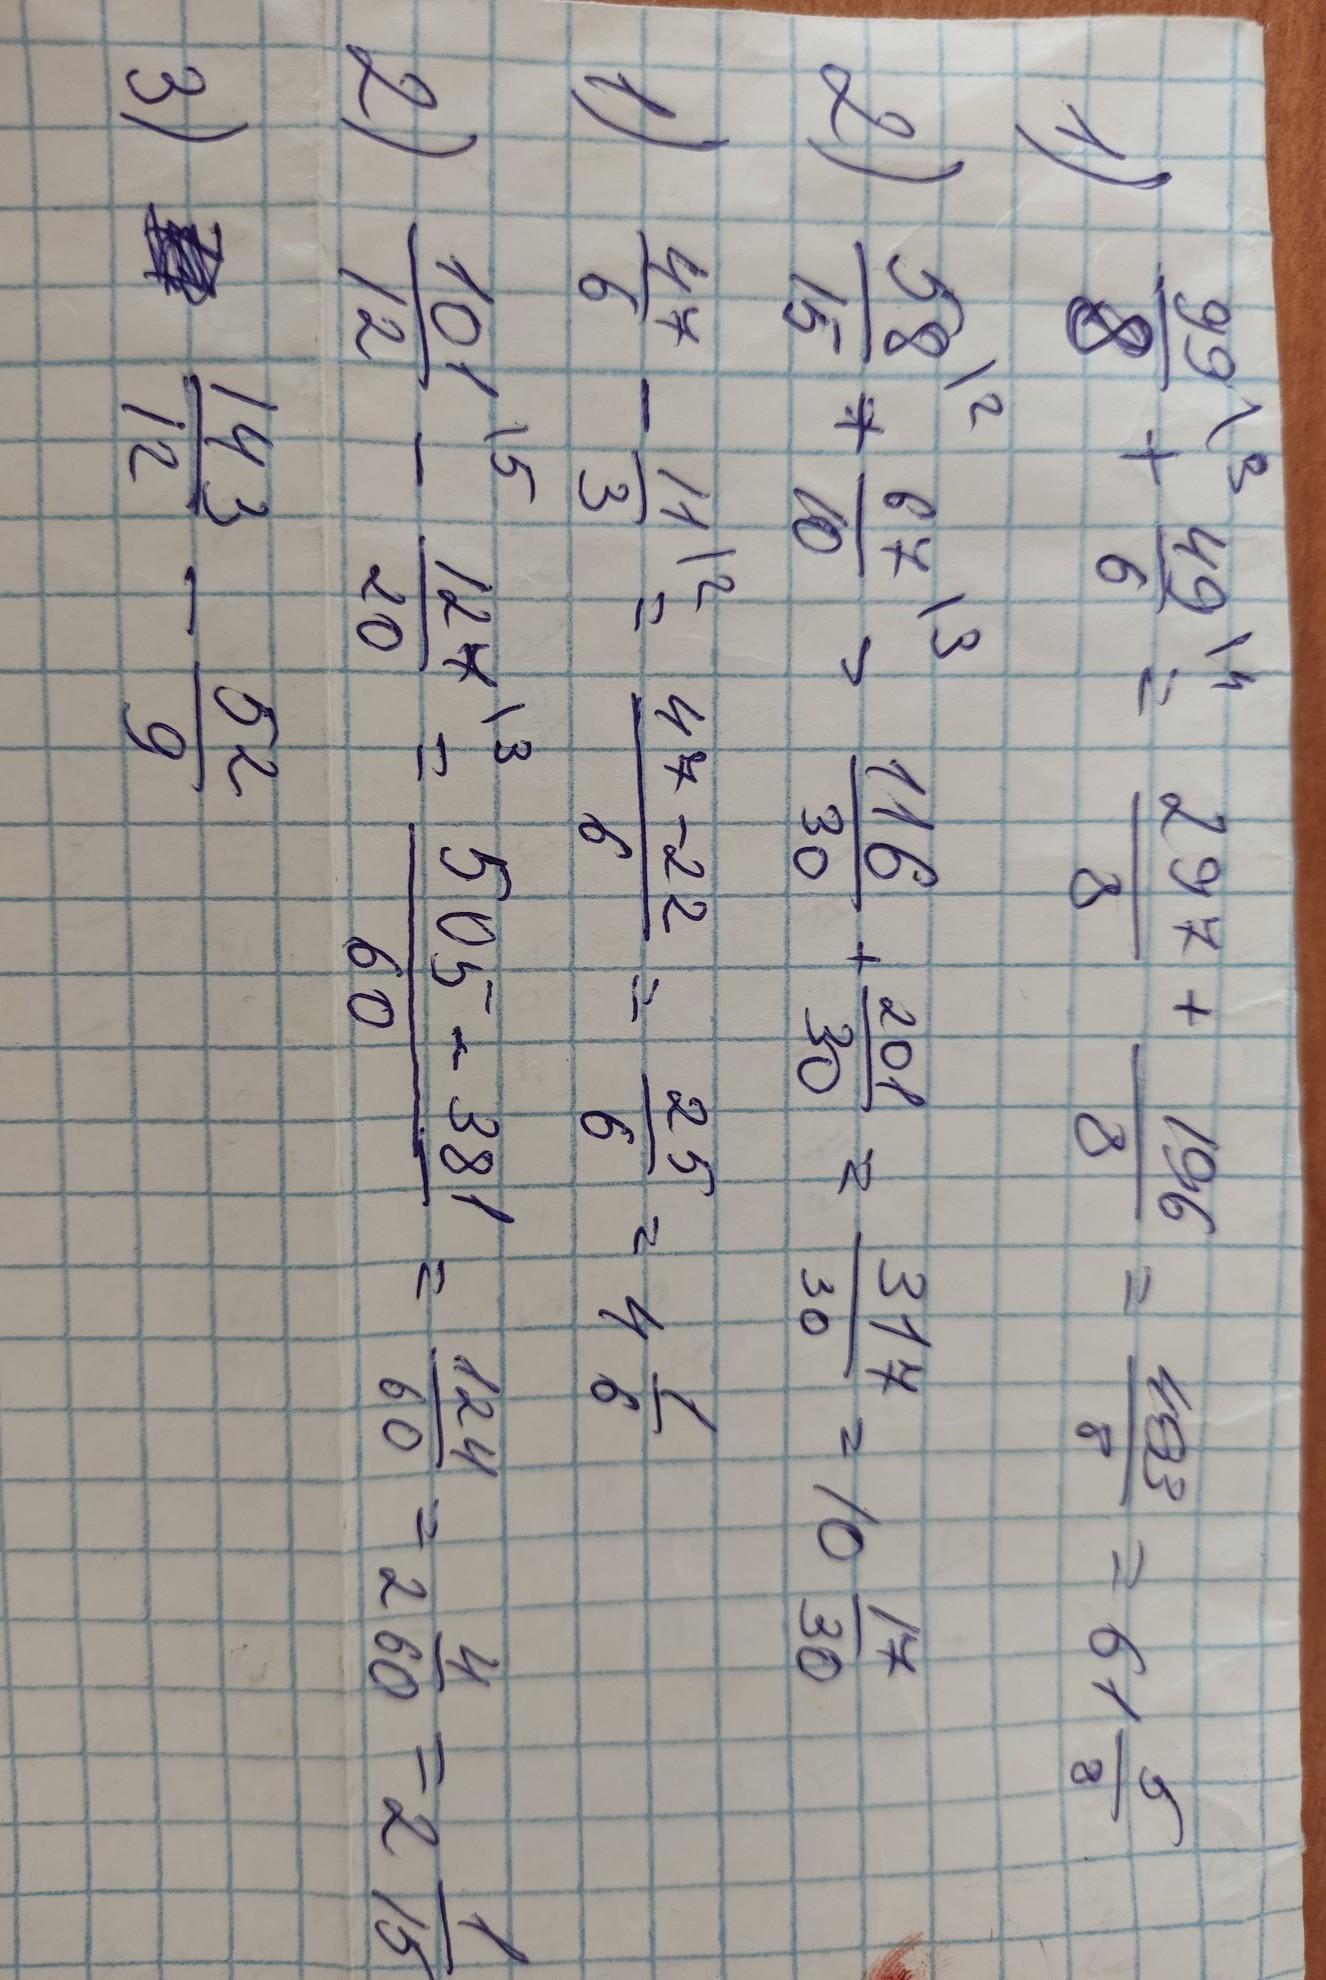 1) 99/8 \3 + 49/6 \4 = 297/8 + 196/8 = 493/8 = 61 5/8
2) 58/15 \2 + 67/10 \3 = 116/30 + 201/30 = 317/30 = 10 17/30
1) 47/6 - 11/3 \2 = 47-22/6 = 25/6 = 4 1/6
2) 101/12 \5 - 127/20 \3 = 505-381/60 = 124/60 = 2 4/60 = 2 1/15
3) 143/12 - 52/9